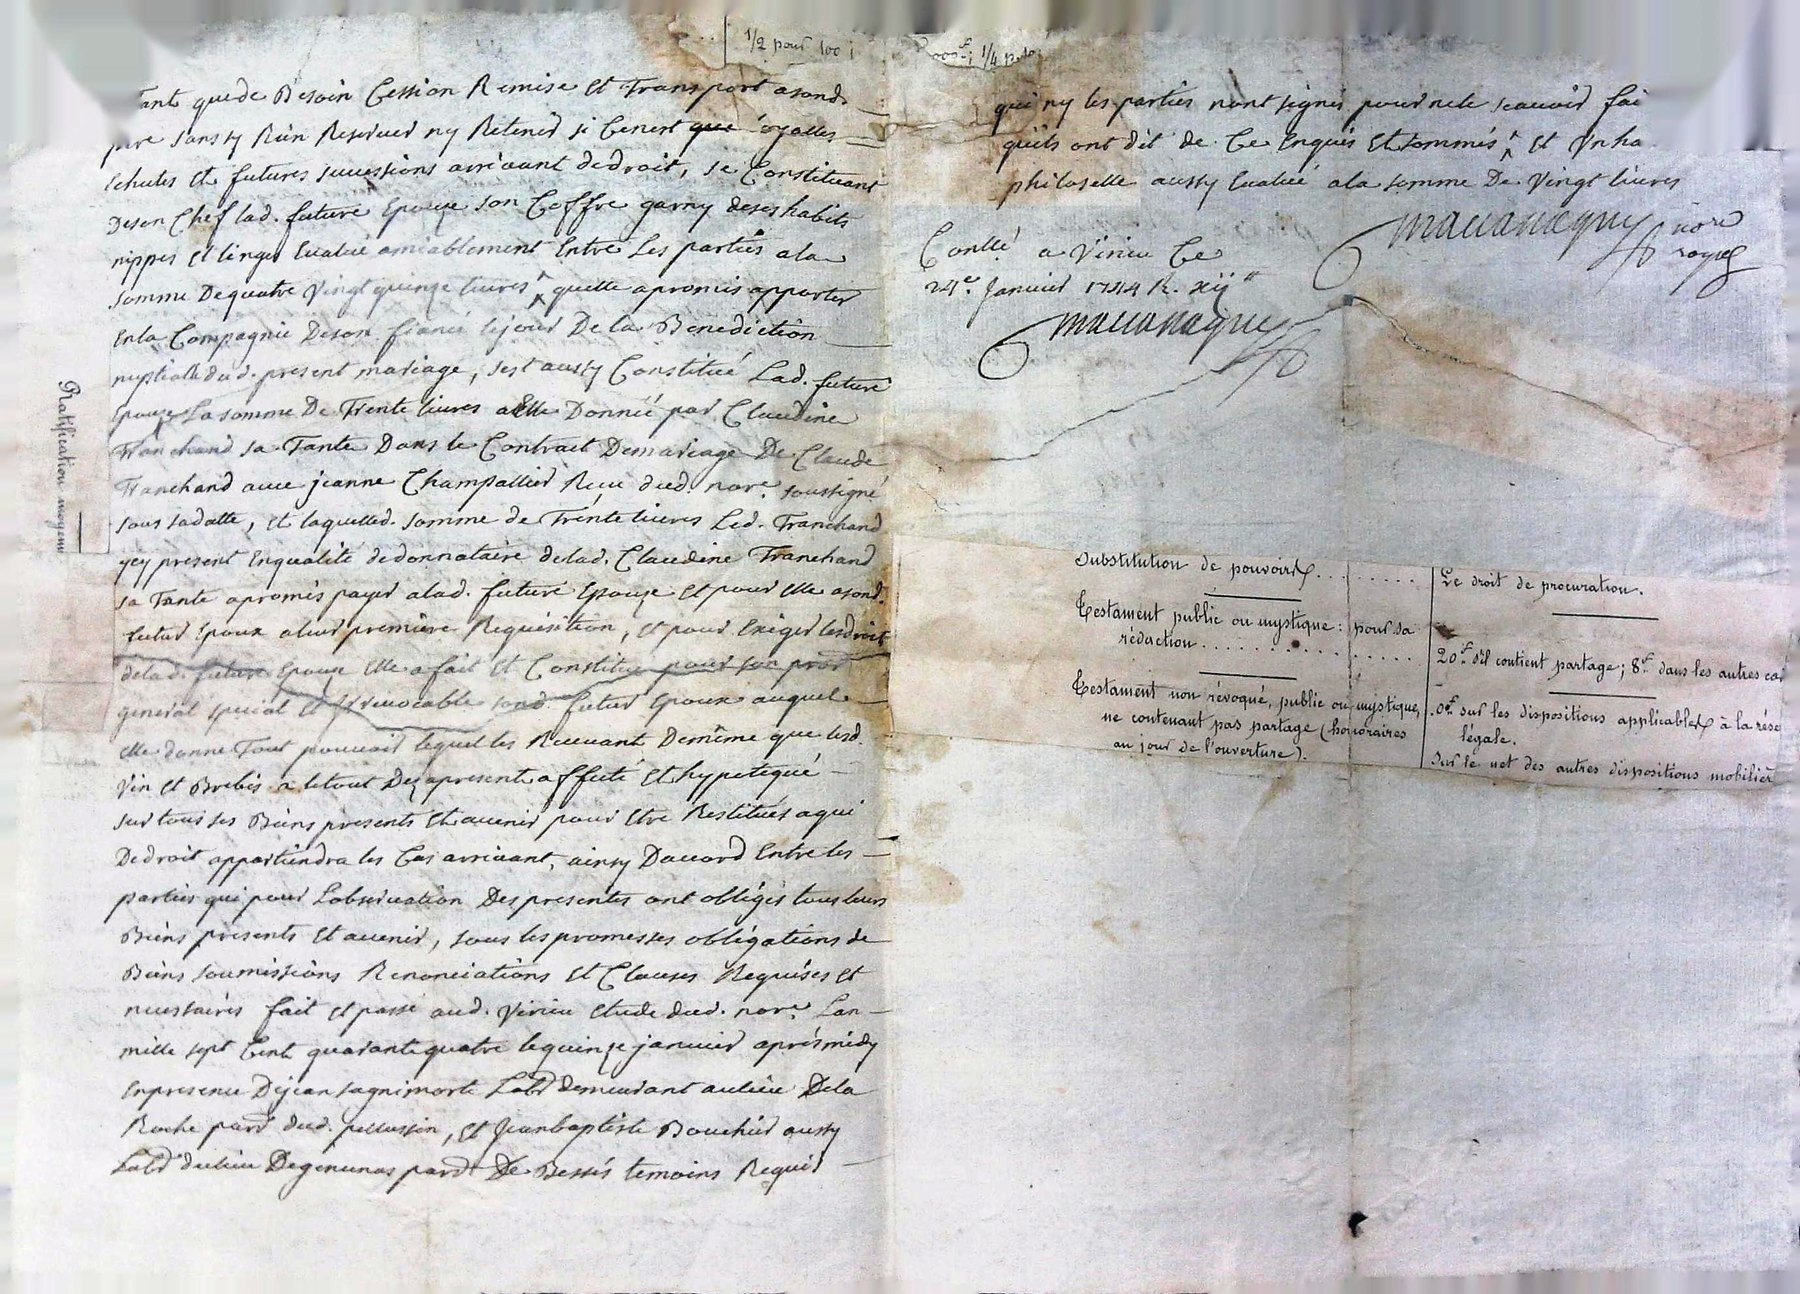 1/2 pour 100
1/4 p.
Tant quede Besoin Cession Remise et Transport asond.
pere sanssy Rien Reserver ny Retenir si Cenest que Loyalles
Echutes et futures successions arrivant dedroit, se Constituant
Deson Chef lad. future Epouze son Coffre garny deses habits
nippes et linges Evalué amiablement Entre Les parties ala
somme Dequatre Vingt quinze livres ^ quelle apromis apporter
Enla Compagnie Deson fiancé lejour De la Benediction
nuptialle dud. present mariage, sest aussy Constitué Lad. future
Epouze La somme De Trente livres aElle Donnée par Claudine
Tranchand sa Tante Dans le Contract Demariage De Claude
Tranchand avec jeanne Champallier Receu dud. nore. soussigné
sous sadatte, et laquelled. somme de Trente livres Led. Tranchand
ycy present Enqualité dedonnataire delad. Claudine Tranchand
sa Tante apromis payer alad. future Epouze et pour Elle asond.
futur Epoux aleur premiere Requisition, et pour Exiger lesdroit
delad. future Epouze Elle a fait et Constitue pour son procr
general special et Irrevocable sond. futur Epoux auquel
Elle donne Tout pouvoir lequel les Recevant Demême que lesd.
Vin et Brebis a letout Dezapresent affecté et hypotequé
sur tous ses Biens presents et avenir pour Etre Restitués aqui
Dedroit appartiendra les Cas arrivant, ainsy Daccord Entre les
parties qui pour Lobservation Des presentes ont obligés tous leurs
Biens presents et avenir, sous les promesses obligations de
Biens soumissions Renonciations et Clauses Requises et
necessaires fait et passé aud. Virieu Etude dud. nore. Lan
mille sept Cent quarante quatre lequinze janvier aprés midy
Enpresence Dejean sagnimorte Labr demeurant aulieu Dela
Roche parr dud. pellussin, et Jeanbaptiste Bouchier aussy
Labr dulieu Degencenas parr De Bessés temoins Requis
Ratification moyen
qui ny les parties nont signés pour nele scavoir fai
quils ont dit de Ce Enquis et sommés ^ et Un ha
philoselle aussy Evalué ala somme De Vingt livres
nore
royal
Contlé a Virieu Ce
24e. Janvier 1744 R. xij s
Substitution de pouvoirs..........
Le droit de procuration.
Testament public ou mystique : pour sa
rédaction....................
20f. s'il contient partage ; 8f. dans les autres cas
Testament non révoqué, public ou mystique,
ne contenant pas partage (honoraires
au jour de l'ouverture).
sur les dispositions applicables à la rése
légale.
Sur le net des autres dispositions mobilièr